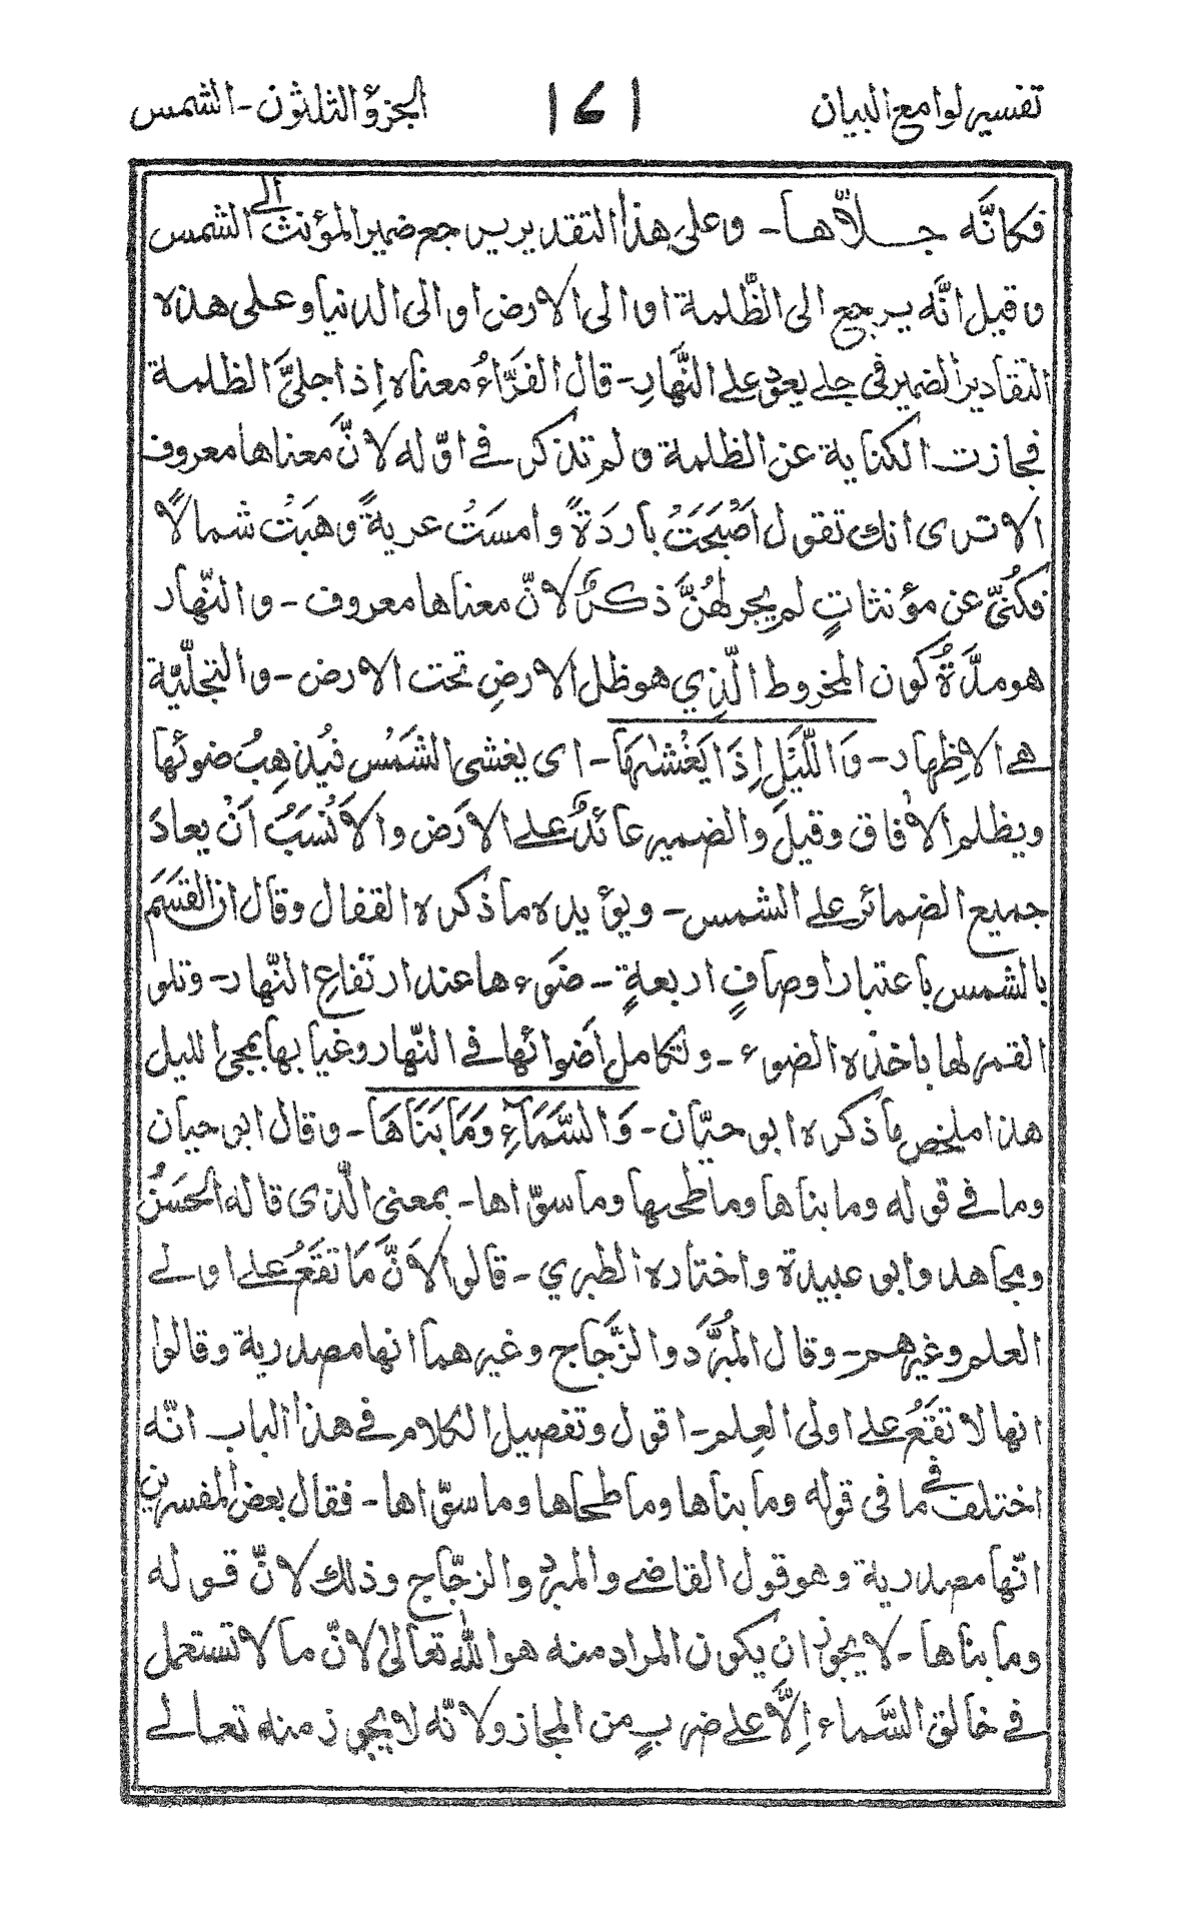 تفسير لوامع البيان ١٧١ الجزؤ الثلثون - الشمس
فكانَّه جلاَّها - وعلى هذا التقدير يرجع ضمير المؤنث الى الشمس
وقيل انَّه يرجع الى الظُّلمة او الى الارض او الى الدنيا وعلى هذه
التقادير الضمير فى جلے يعود علے النَّهارِ - قال الفَرَّاءُ معناه اِذا جلىَّ الظلمة
فجازت الكناية عن الظلمة ولم تذكر فے اوّله لانَّ معناها معروف
الا ترى انك تقول اَصْبَحَتُ باردَةً وامسَتُ عريةً وهبَتُ شمالًا
فكُنىّ عن مؤنثاتٍ لم يجر لهُنَّ ذكرٌ لانّ معناها معروف - والنّهار
هو مدَّةُ كون المخروط الّذي هو ظل الارضِ تحت الارض - والتجلّيّة
هے الاظِهار - وَاللَّيْلِ اِذَا يَغْشٰىهَا - اى يغشى الشَمْس فيُذهِبُ ضوئها
ويظلم الاٰفاق وقيلَ والضمير عائدٌ علے الارَض والاَنْسَبُ اَنْ يعادَ
جميع الضمائر علے الشمس - ويؤيده ما ذكره القفال وقال ان القَسَمَ
بالشمس باعتبار اوصافٍ اربعةٍ - ضَوء ها عند ارتفاعِ النّهار - وتلو
القمر لها باخذه الضوء - ولتكامل اَضوائها فے النّهار وغيابها بمجى الليل
هذا ملخص ما ذكره ابو حيّان - وَالسَّمَآءِ وَمَا بَنَاهَا - وقال ابو حيان
وما فے قوله وما بناها وما طحٰىها وما سوّاها - بمعنى الّذى قاله الحَسَنُ
ومجاهد وابو عبيدة واختاره الطبري - قالوا لاَنَّ مَا تقَعُ علے اولے
العلم وغيرهم - وقال المُبرَّد والزَّجاج وغيرهما انها مصدرية وقالوا
انها لا تقَعُ علے اولى العِلم - اقول وتفصيل الكلام فے هذا الباب انّه
اختلف فے ما فى قوله وما بناها وما طحاها وما سوّاها - فقال بعض المفسرين
انّها مصدرية وهو قول القاضے والمبرد والزجّاج وذلك لانّ قوله
وما بناها - لا يجوز ان يكون المراد منه هو اللّٰه تعالىٰ لانّ ما لا تستعمل
فے خالق السَّماء اِلَّا علے ضربٍ من المجاز ولانّه لا يجوز منه تعالے